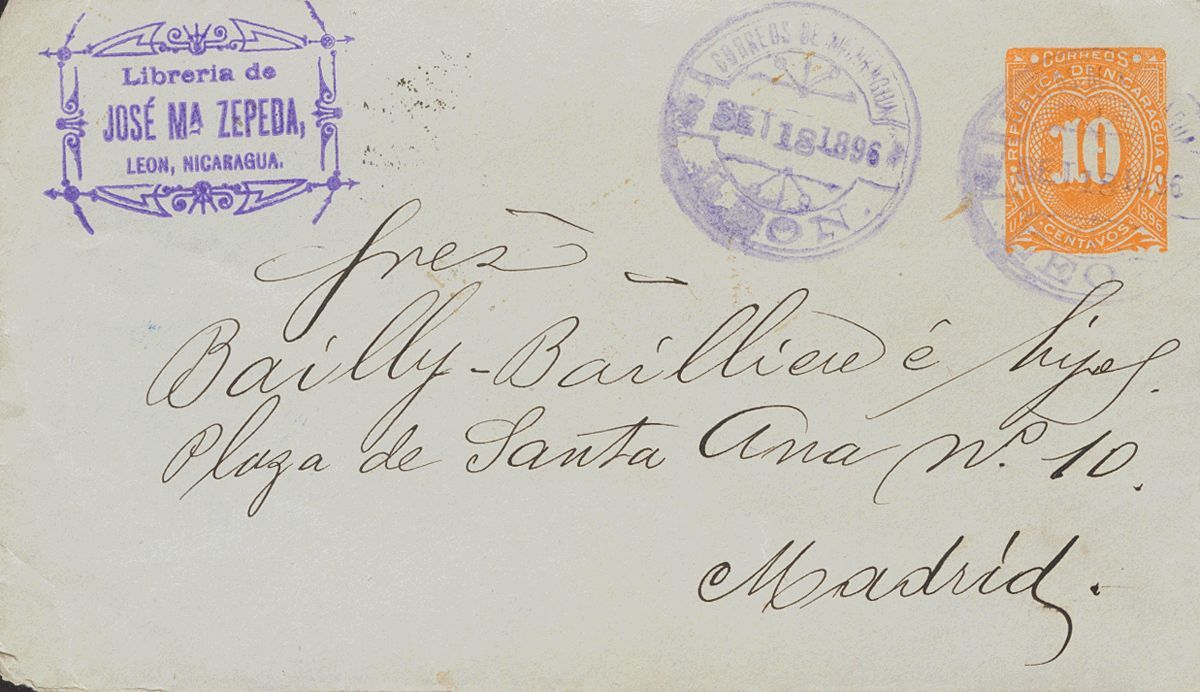 Libreria de
JOSÉ Mª ZEPEDA,
LEON, NICARAGUA.
CORREOS DE NICARAGUA
SET 18 1896
LEON.
CORREOS
REPUBLICA DE NICARAGUA
10
CENTAVOS
1896
LEO
Sres
Bailly-Bailliere é hijos.
Plaza de Santa Ana nº 10.
Madrid.